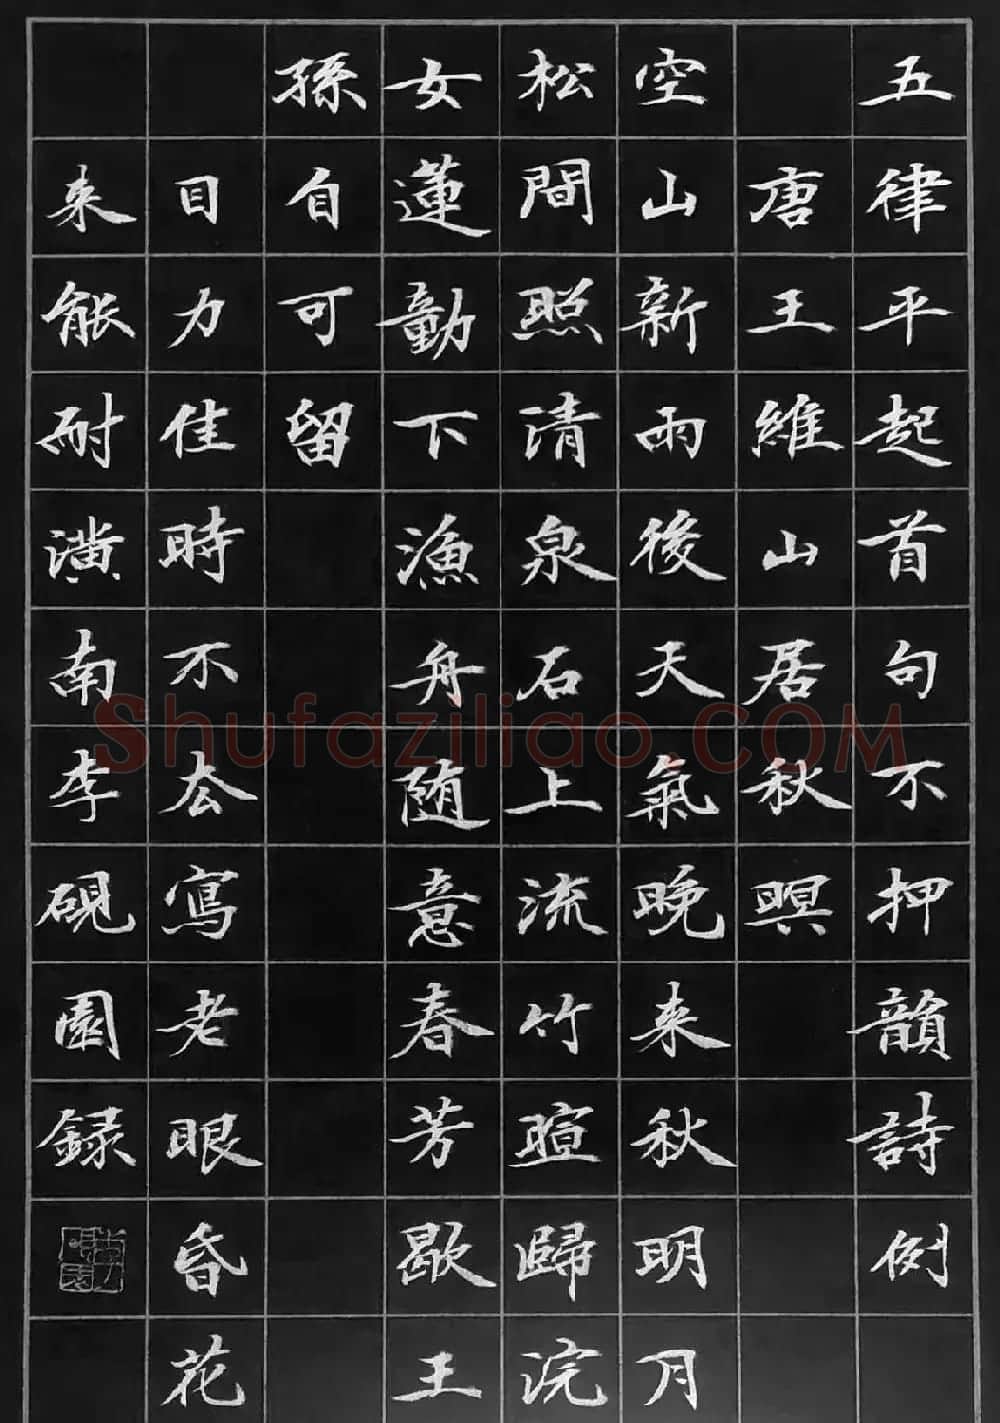 五律平起首句不押韻詩例
唐王維山居秋暝
空山新雨後天氣晚来秋明月
松間照清泉石上流竹暄歸浣
女蓮動下漁舟随意春芳歇王
孫自可留
目力佳時不厺寫老眼昏花
来能耐潢南李硯園録
Shufaziliao.COM